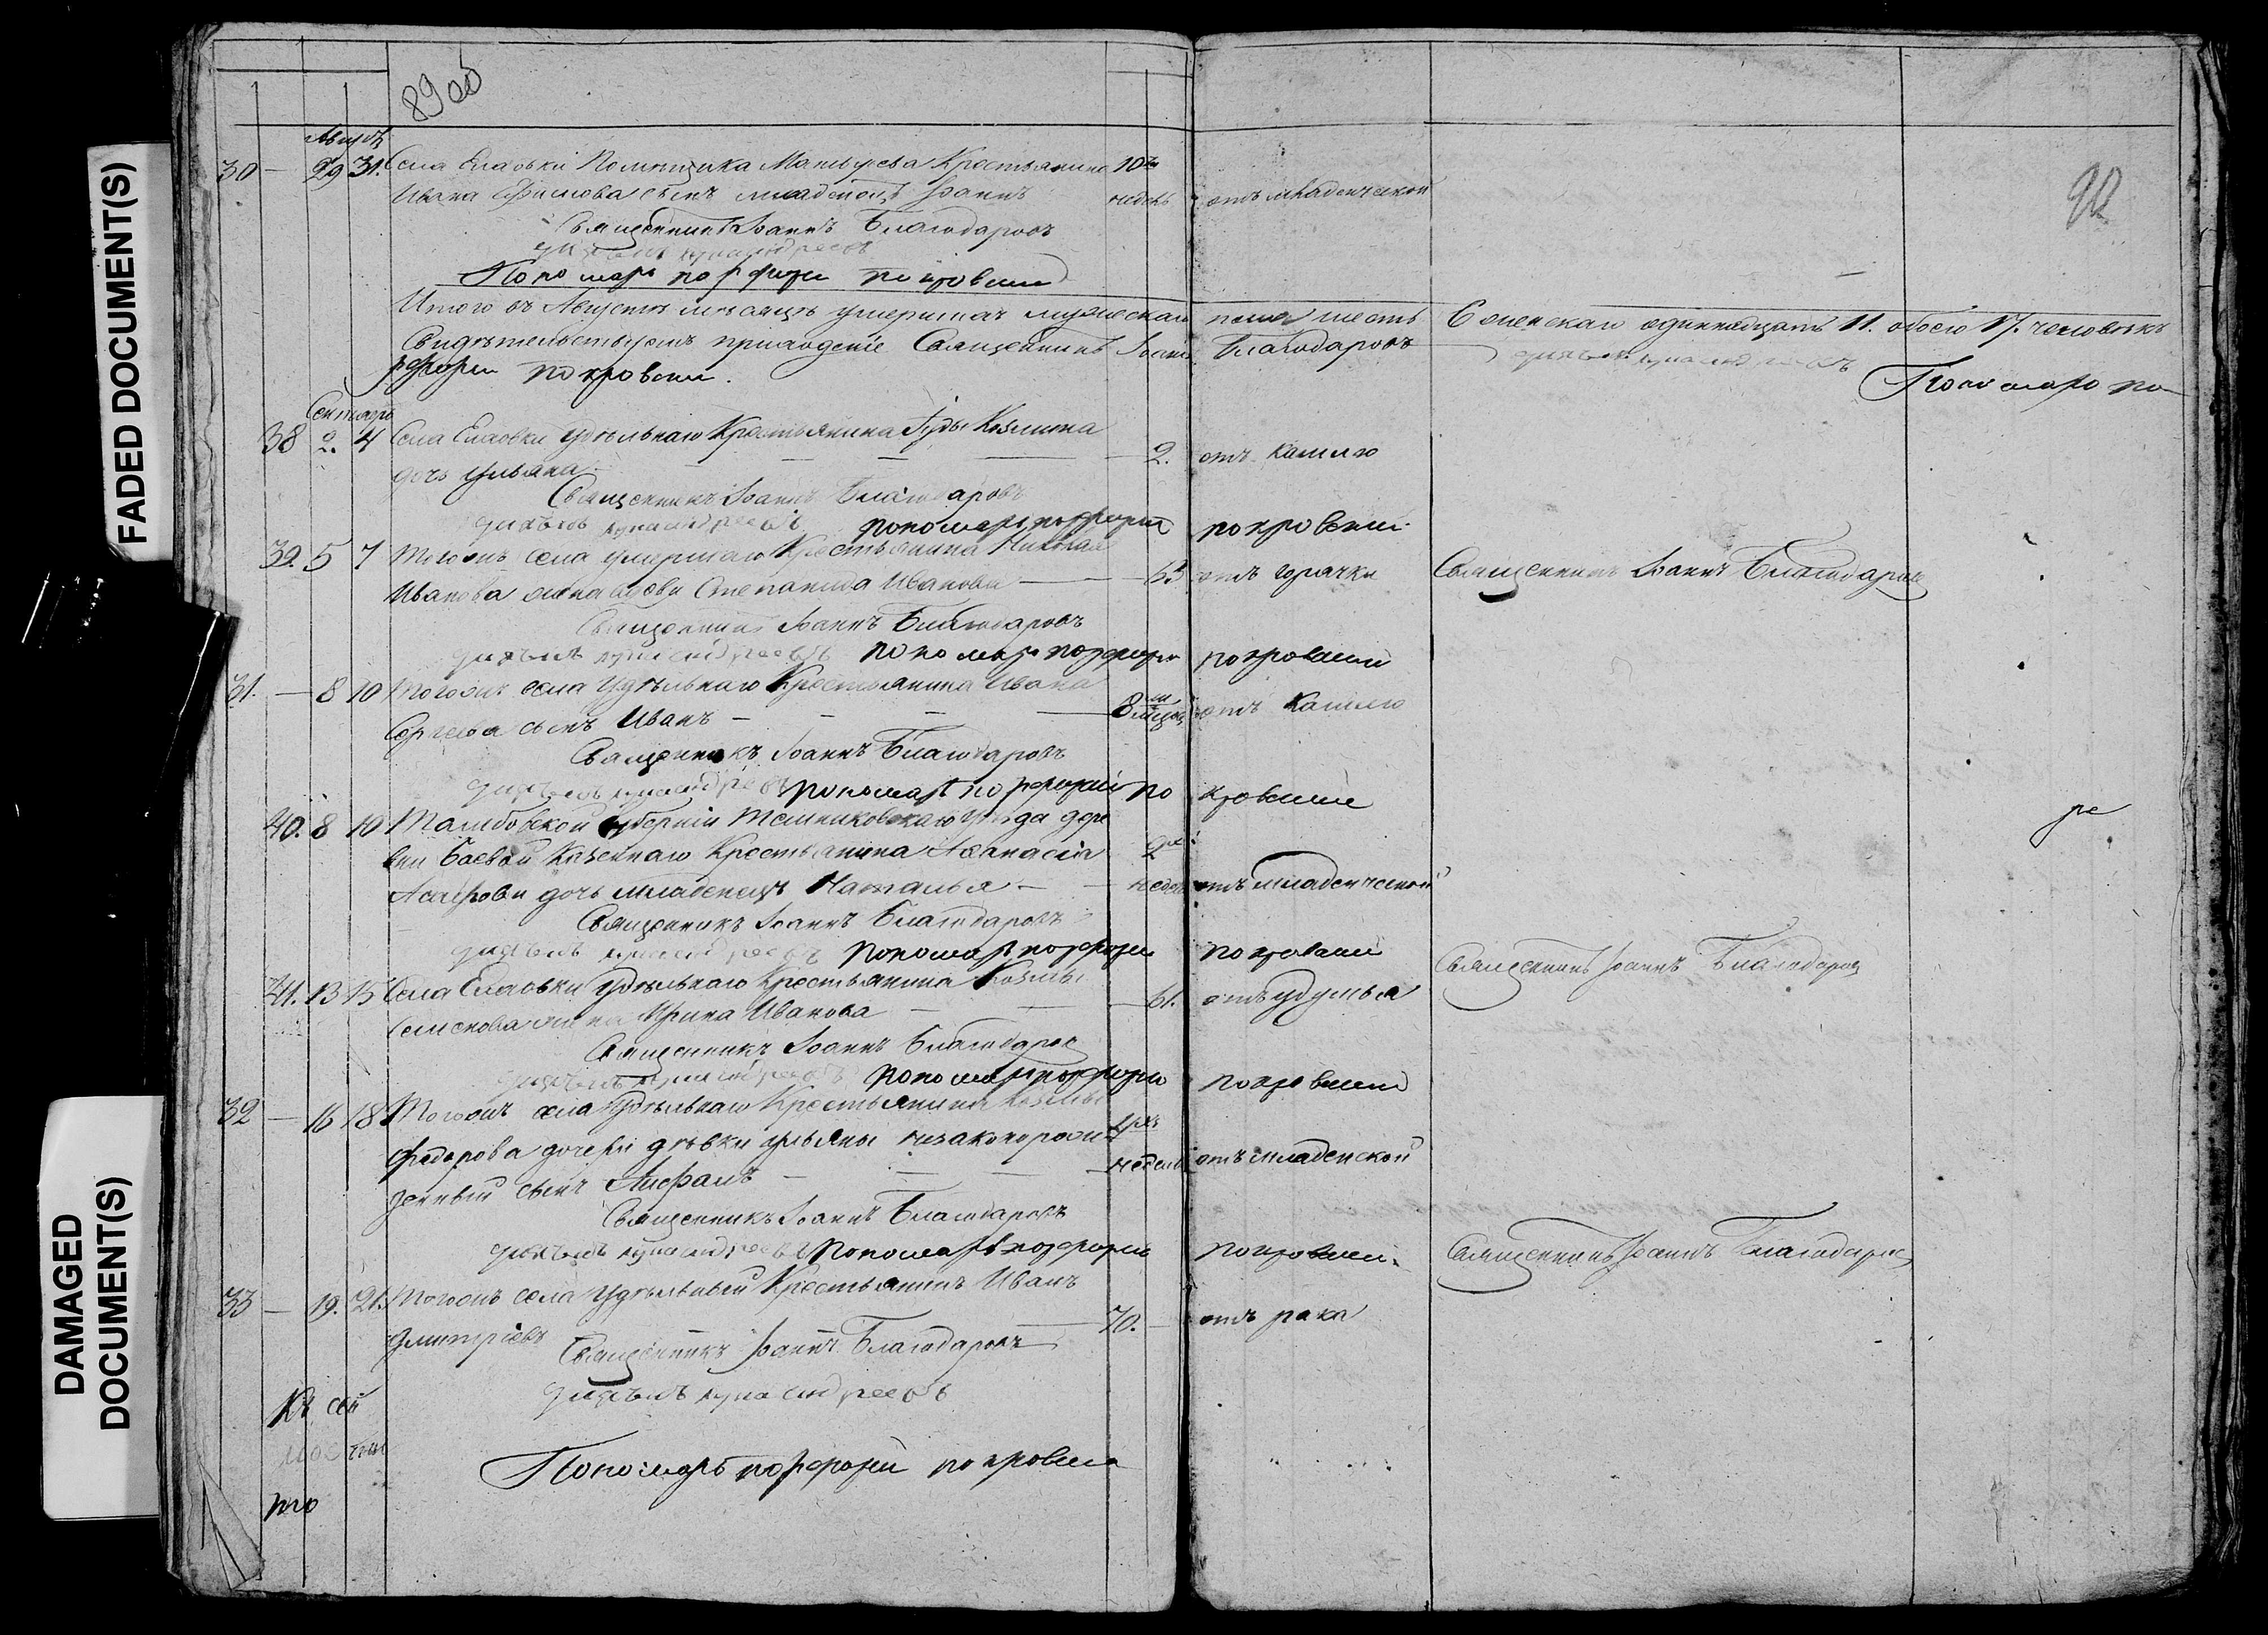 FADED DOCUMENT(S)
DAMAGED DOCUMENT(S)
89 об
90
Августъ
30 — 29 31. Села Елаовки Помѣщика Крестьянина 10ти
Ивана сынъ младенецъ Іоаннъ недѣль отъ младенческой
Священникъ Іоаннъ Благодаровъ
Пономарь порфирий покровский
Итого въ Августѣ мѣсяцѣ умершихъ мужескаго пола шесть 6 женскаго одиннадцать 11. обоего 17. человѣкъ
Свидѣтельствуемъ приходскіе Священникъ Іоаннъ Благодаровъ дьячекъ лука андреевъ Пономарь по
рфирий покровский.
Сентябрь
38 2. 4 Села Елаовки удѣльнаго Крестьянина
дочь ульяна — 2. отъ кашлю
Священникъ Іоаннъ Благодаровъ
дьячекъ лука андреевъ пономарь порфирий покровский.
39. 5 7 Тогожъ села умершаго Крестьянина Николая
Иванова жена вдова Степанида Иванова — 65 отъ горячки Священникъ Іоаннъ Благодаровъ
Священникъ Іоаннъ Благодаровъ
дьячекъ лука андреевъ пономарь порфирий покровский
31. — 8 10 Тогожъ села Удѣльнаго Крестьянина Ивана
Сергеева сынъ Иванъ — 8ми мѣсяц отъ Кашлю
Священникъ Іоаннъ Благодаровъ
дьячекъ лука андреевъ пономарь порфирий покровский
40. 8 10 Тамбовской Губерніи Темниковскаго уѣзда дере
вни Баевой Казеннаго Крестьянина Афанасія 2
дочь младенецъ Наталья — недѣл отъ младенческой
Священникъ Іоаннъ Благодаровъ
дьячекъ лука андреевъ пономарь порфирий покровский
41. 13 15 Села Елаовки Удѣльнаго Крестьянина Козмы
Семенова жена Ирина Иванова — 61. отъ удушья Священникъ Іоаннъ Благодаровъ
Священникъ Іоаннъ Благодаровъ
дьячекъ лука андреевъ пономарь порфирий покровский
32 — 16 18 Тогожъ села Удѣльнаго Крестьянина Козмы
Федорова дочери дѣвки ульяны незаконорож
денный сынъ — недель отъ младенской
Священникъ Іоаннъ Благодаровъ
дьячекъ лука андреевъ пономарь порфирий покровский. Священникъ Іоаннъ Благодаровъ
33 — 19. 21. Тогожъ села Удѣльный Крестьянинъ Иванъ
Дмитріевъ — 70. отъ рака
Священникъ Іоаннъ Благодаровъ
дьячекъ лука андреевъ
Къ сей
Пономарь порфирий покровский